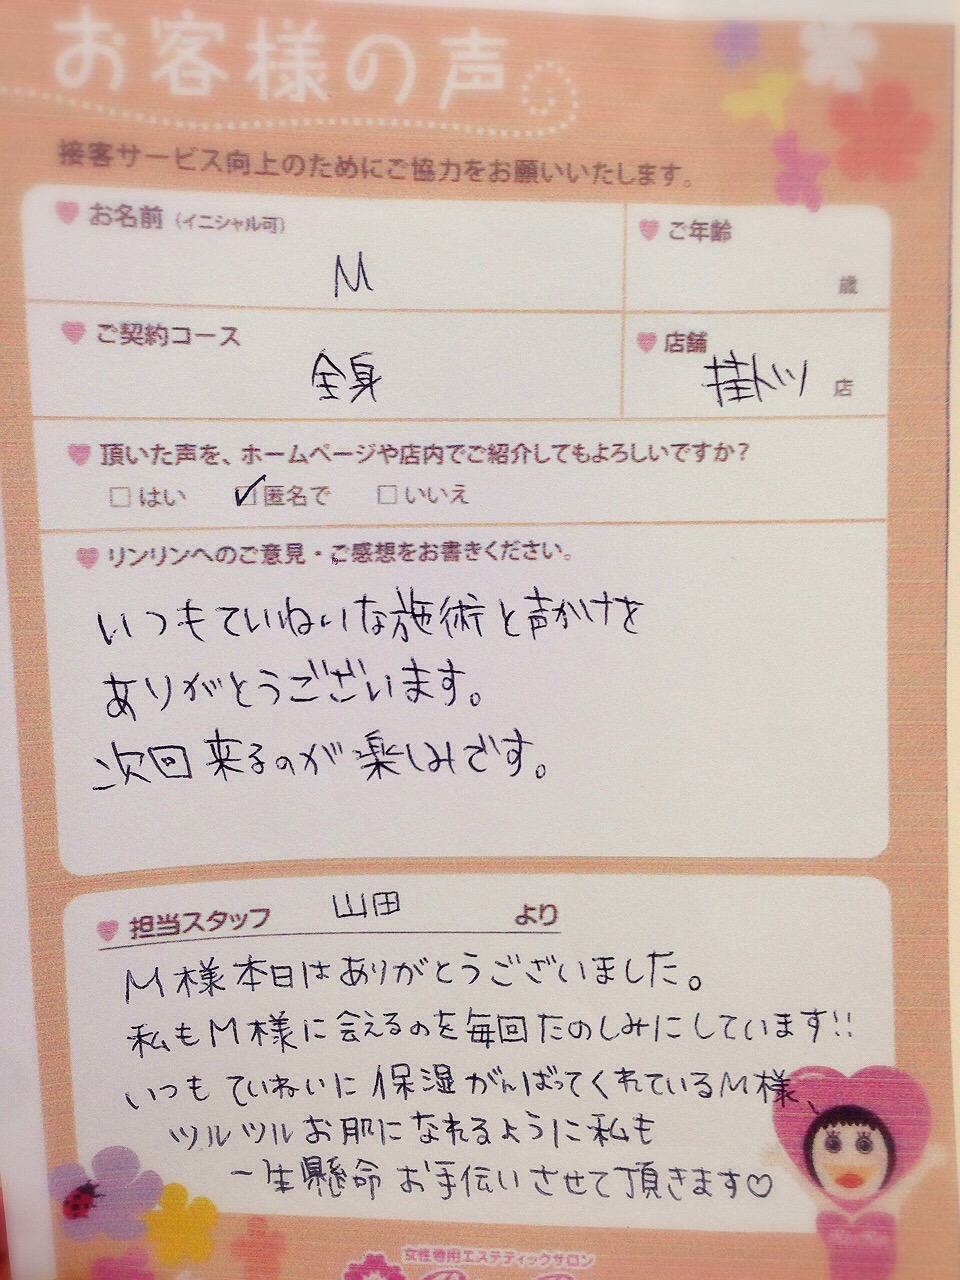 お客様の声
接客サービス向上のためにご協力をお願いいたします。
お名前（イニシャル可）
M
ご年齢
歳
ご契約コース
全身
店舗
掛ケツ 店
頂いた声を、ホームページや店内でご紹介してもよろしいですか？
□はい ☑匿名で □いいえ
リンリンへのご意見・ご感想をお書きください。
いつもていねいな施術と声かけを
ありがとうございます。
次回来るのが楽しみです。
担当スタッフ 山田 より
M様本日はありがとうございました。
私もM様に会えるのを毎回たのしみにしています!!
いつもていねいに保湿がんばってくれているM様、
ツルツルお肌になれるように私も
一生懸命お手伝いさせて頂きます♡
女性専用エステティックサロン